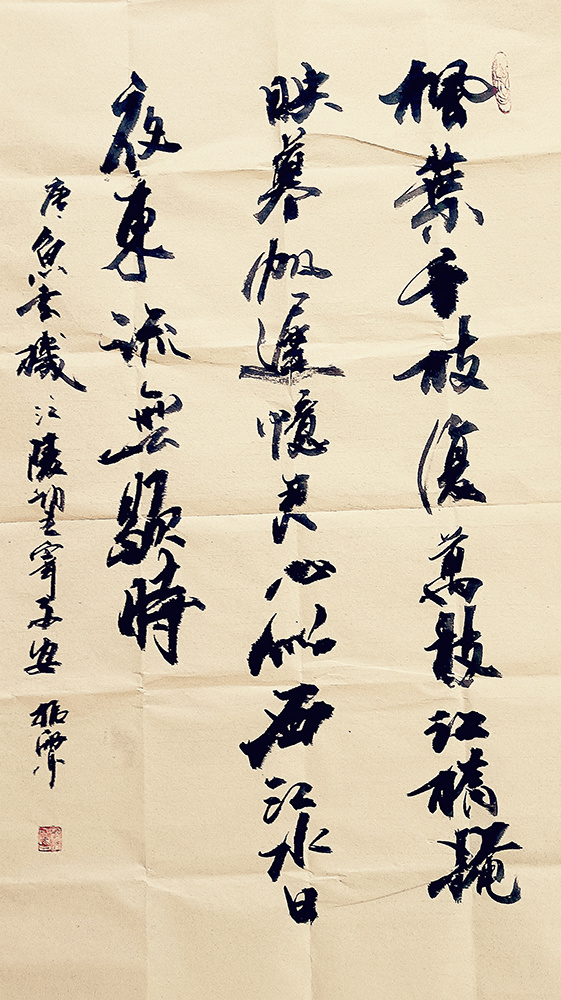 楓葉千枝復萬枝江橋掩
映暮帆遲憶君心似西江水日
夜東流無歇時
唐魚玄機江陵望寄子安